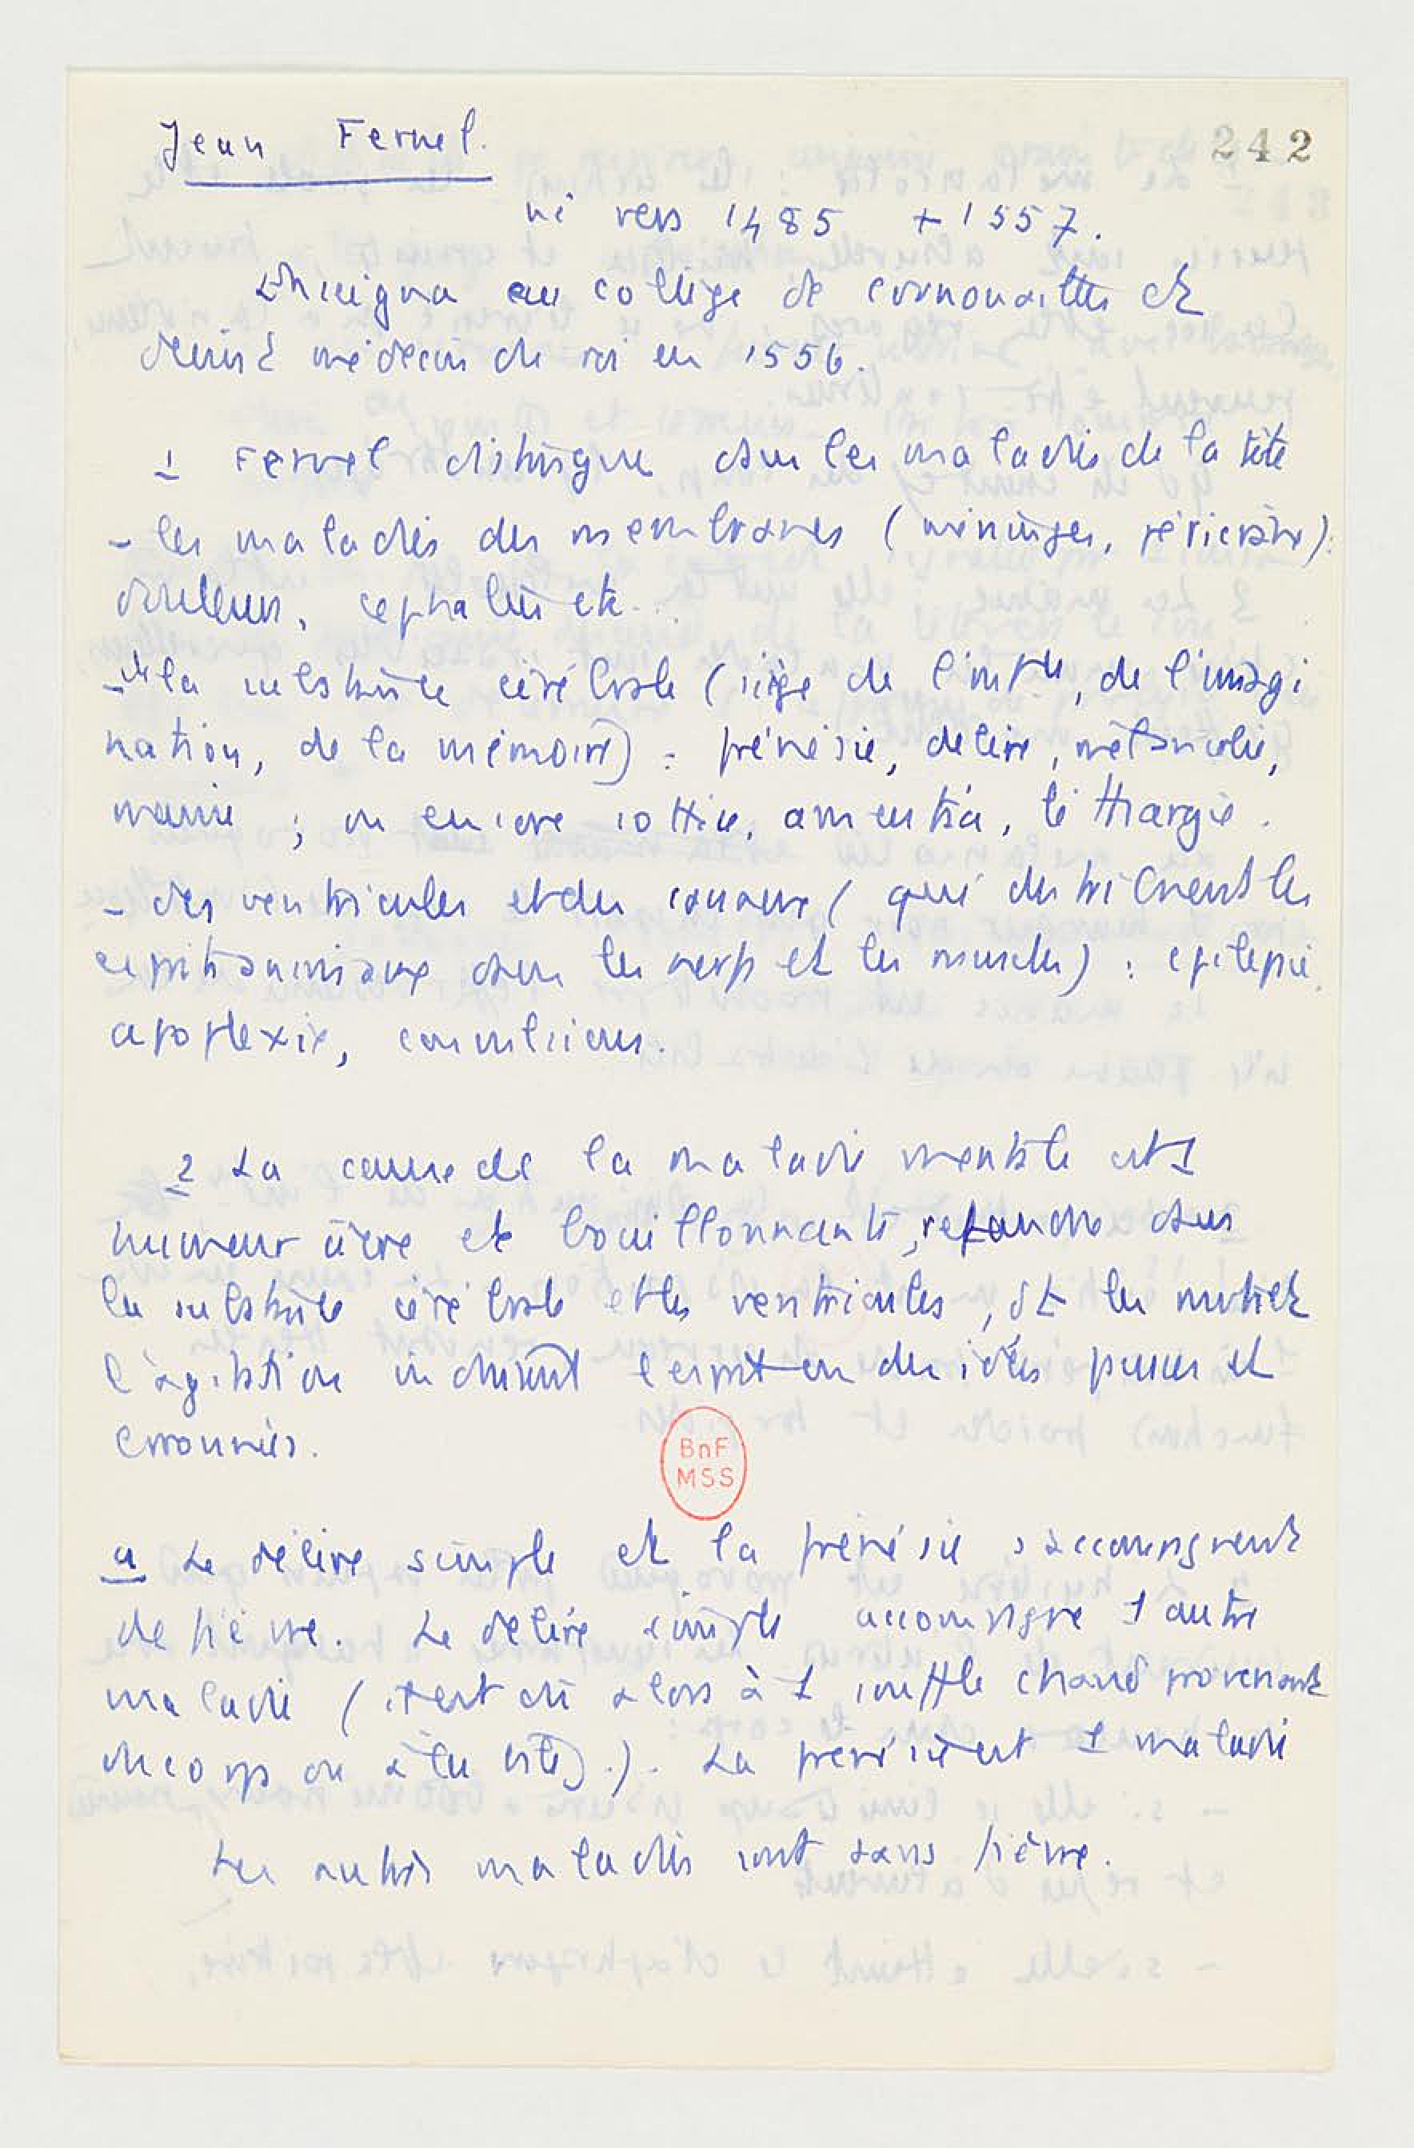 242
Jean Fernel.
né vers 1485 + 1557.
Enseigna au collège de Cornouailles et
devint médecin du roi en 1556.
1 Fernel distingue dans les maladies de la tête
- les maladies des membranes (méninges, péricrâne):
douleurs, cephalées etc..
- de la substance cérébrale (siège de l'intce, de l'imagi
nation, de la mémoire) : frénésie, delire, mélancolie,
manie ; ou encore sottise, amentia, léthargie.
- des ventricules et des canaux (qui distribuent les
esprits animaux dans les nerfs et les muscles) : epilepsie,
apoplexie, convulsions.
2 La cause de la maladie mentale est 1
humeur âcre et bouillonnante, répandue dans
la substance cérébrale et les ventricules, et les
l'agitation induisant l'esprit en des idées fausses et
erronées.
a Le délire simple et la frénésie s'accompagnent
de fièvre. Le délire simple accompagne 1 autre
maladie (il est dû alors à 1 souffle chaud provenant
du corps ou à la bile).). La frénésie est 1 maladie
Les autres maladies sont sans fièvre.
BnF
MSS